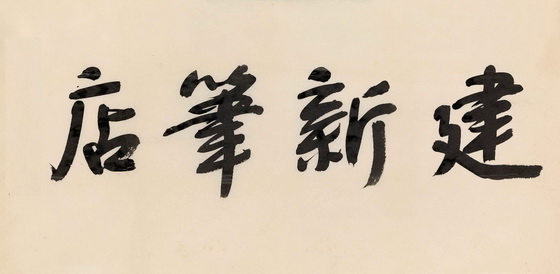 建新筆店